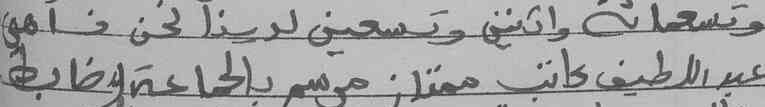 وتسعمائة واثنين وتسعين لدينا نحن فاهي
عبد اللطيف كاتب ممتاز مرسم بالجماعة لإضابط